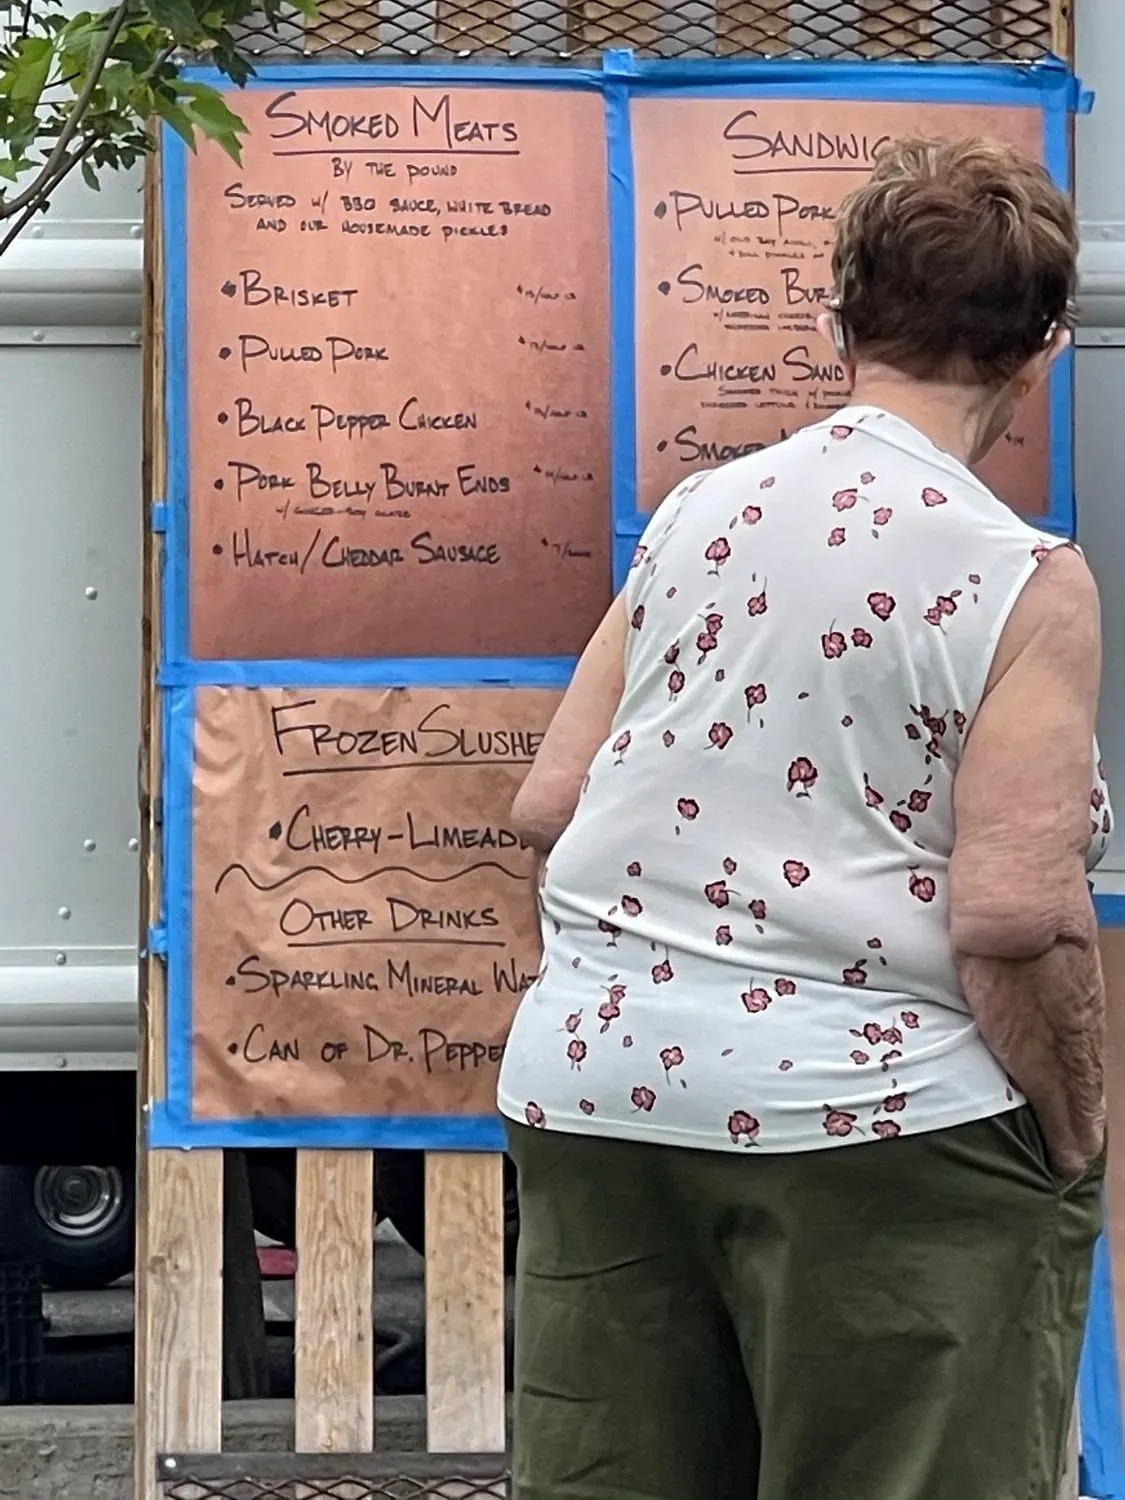 SMOKED MEATS
BY THE POUND
SERVED W/ BBQ SAUCE, WHITE BREAD
AND OUR HOUSEMADE PICKLES
• BRISKET
• PULLED PORK
• BLACK PEPPER CHICKEN
• PORK BELLY BURNT ENDS
• HATCH/CHEDDAR SAUSAGE
SANDWIC
• PULLED PORK
• SMOKED BUR
• CHICKEN SAND
• SMOKED
FROZEN SLUSHE
• CHERRY-LIMEADE
OTHER DRINKS
• SPARKLING MINERAL WAT
• CAN OF DR. PEPPE